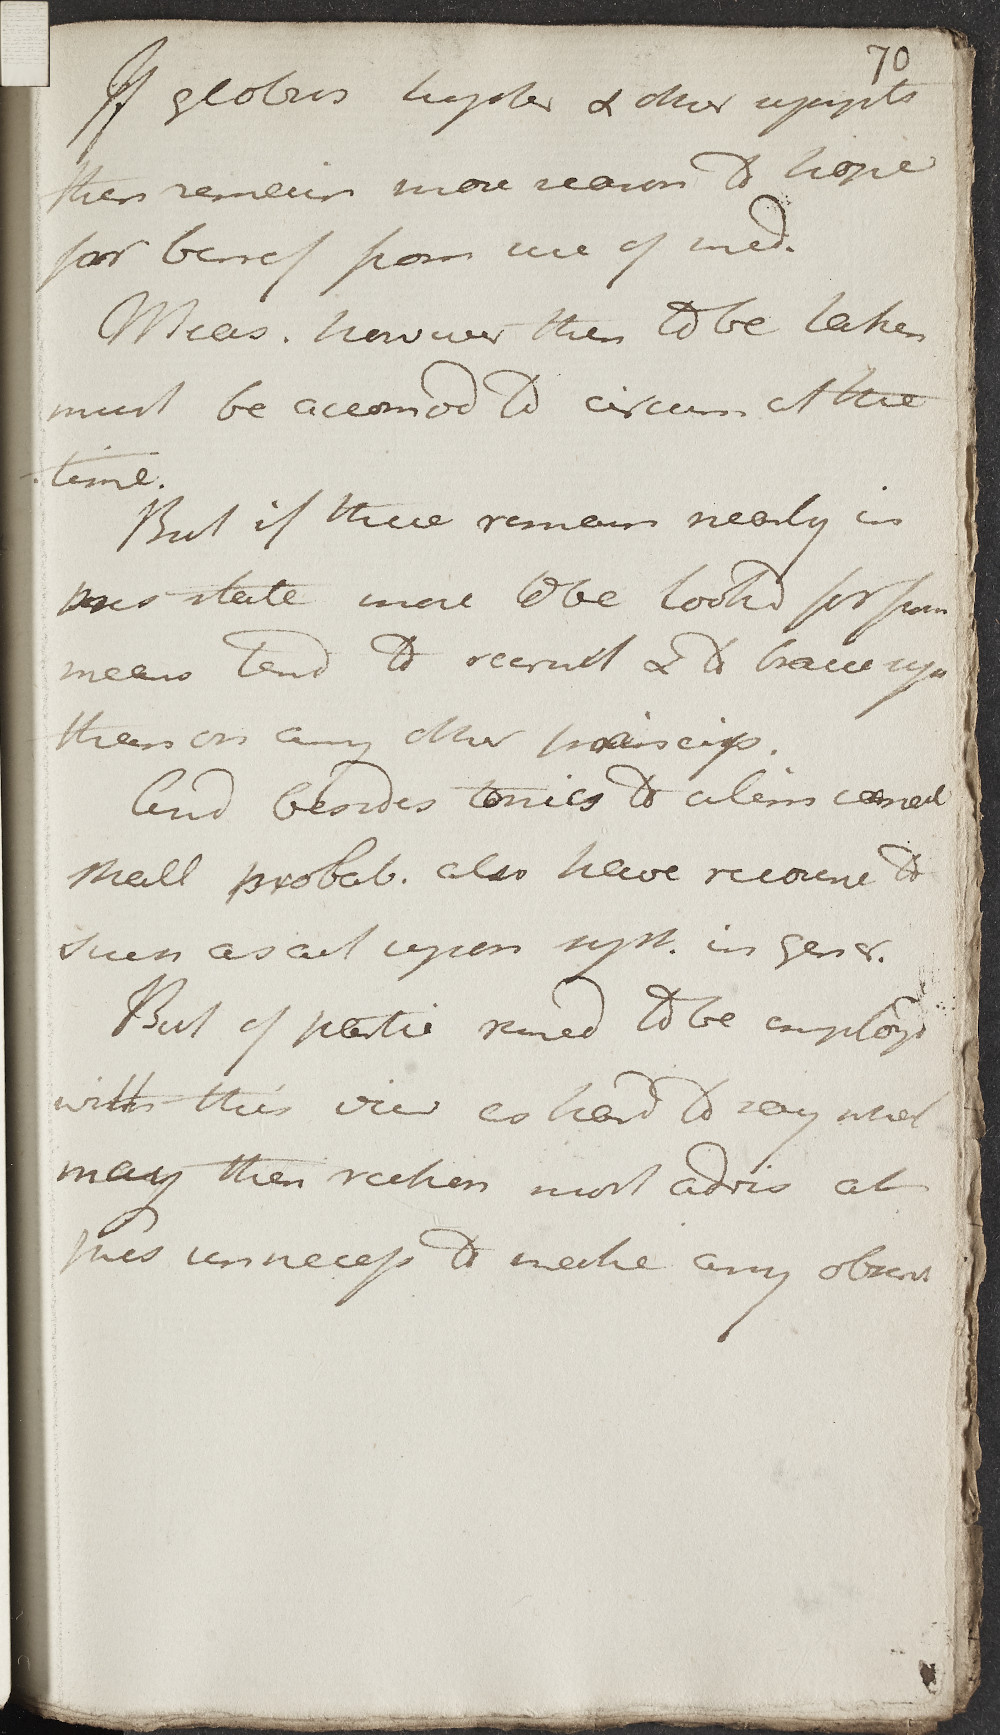 70
If globus hyster & other sympts
then remain more reason to hope
for benef from use of med.
Meas. however then to be taken
must be accomod to circum at the
time.
But if these remain nearly in
pres state more to be look'd for from
means tend to recruit & to brace sys
than on any other princip.
And besides tonics to alim canal
shall probab. also have recourse to
such as act upon syst. in gener.
But of partic remed to be employd
with this view as hard to say what
may then reckon most advis at
pres unnecess to make any observ